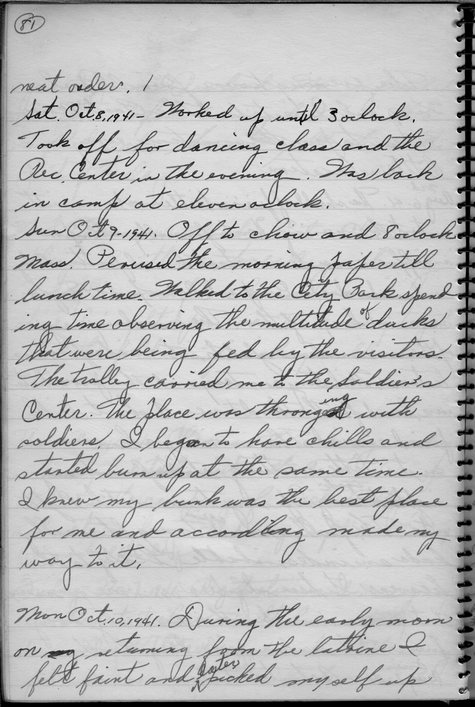 81
neat order. 1
Sat. Oct 8, 1941 - Worked up until 3 oclock.
Took off for dancing class and the
Rec. Center in the evening. Was back
in camp at eleven oclock.
Sun Oct 9. 1941. Off to chow and 8 oclock
Mass. Perused the morning paper till
lunch time. Walked to the City Park spend
ing time observing the multitude of ducks
that were being fed by the visitors.
The trolley carried me to the Soldier's
Center. The place was thronging with
soldiers. I began to have chills and
started burn up at the same time.
I knew my bunk was the best place
for me and according made my
way to it.
Mon Oct. 10, 1941. During the early morn
on returning from the latrine I
felt faint and later picked myself up